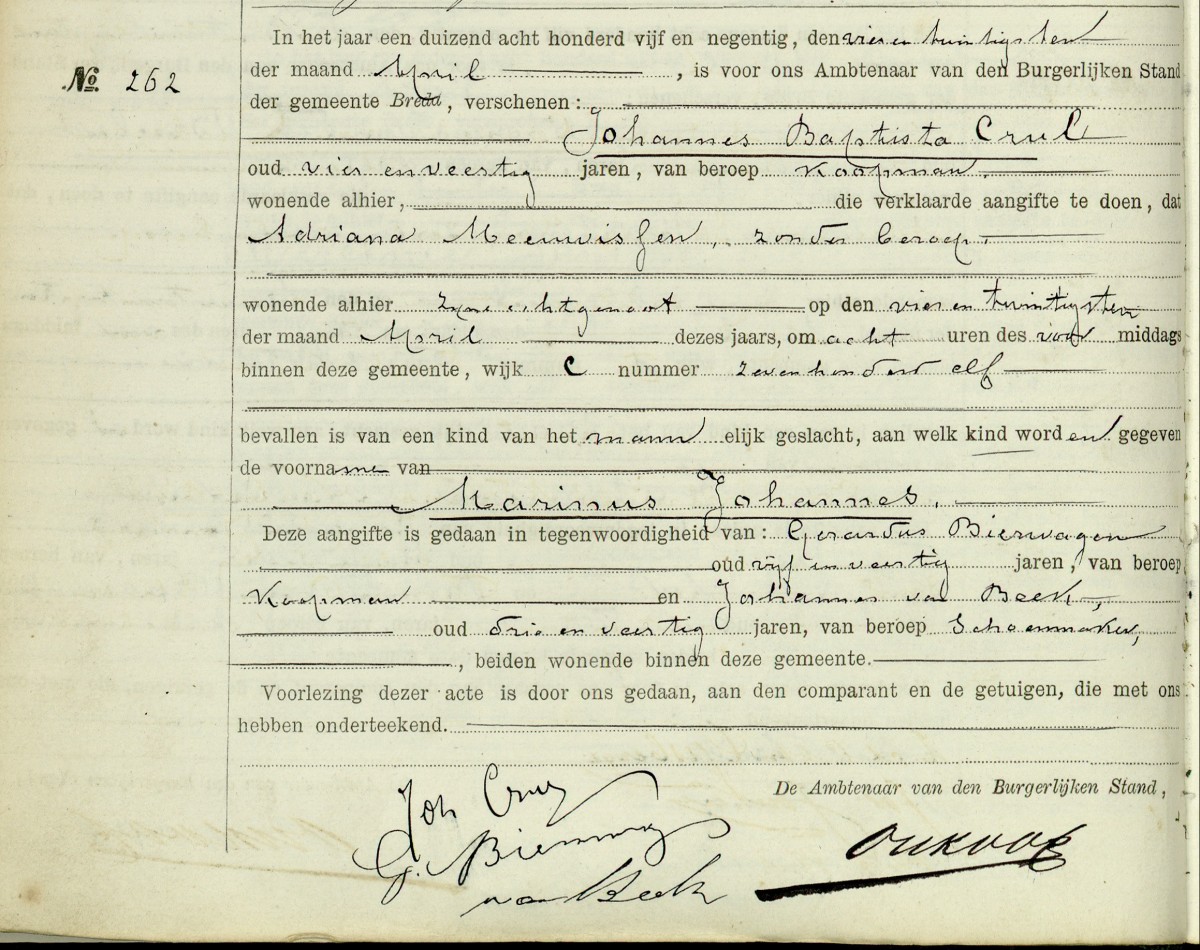 In het jaar een duizend acht honderd vijf en negentig, den vier en twintigsten
№ 262
der maand April, is voor ons Ambtenaar van den Burgerlijken Stand
der gemeente Breda, verschenen:
Johannes Baptista Crul
oud vier en veertig jaren, van beroep Koopman,
wonende alhier, die verklaarde aangifte te doen, dat
Adriana Meeuwissen, zonder beroep,
wonende alhier zijne echtgenoot op den vier en twintigsten
der maand April dezes jaars, om acht uren des voor middags
binnen deze gemeente, wijk C nummer zevenhonderd elf
bevallen is van een kind van het mann elijk geslacht, aan welk kind worden gegeven
de voorname van
Marinus Johannes,
Deze aangifte is gedaan in tegenwoordigheid van: Gerardus Bierwagen
oud vijf en veertig jaren, van beroep
Koopman en Johannes van Beek,
oud drie en veertig jaren, van beroep Schoenmaker,
, beiden wonende binnen deze gemeente.
Voorlezing dezer acte is door ons gedaan, aan den comparant en de getuigen, die met ons
hebben onderteekend.
De Ambtenaar van den Burgerlijken Stand,
Joh Crul
G. Bierwag
van Beek